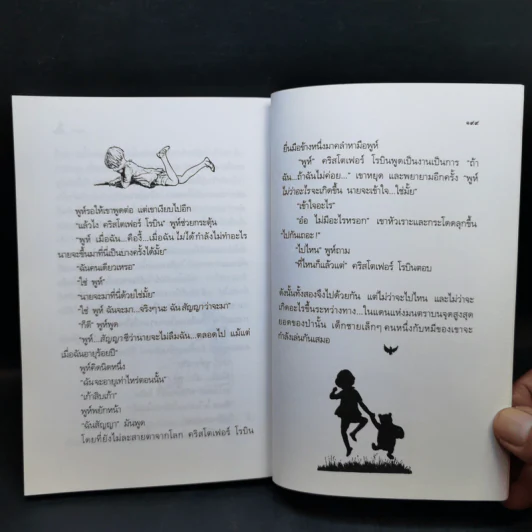 พูห์รอให้เขาพูดต่อ แต่เขาเงียบไปอีก
"แล้วไง คริสโตเฟอร์ โรบิน" พูห์ช่วยกระตุ้น
"พูห์ เมื่อฉัน...คือว่า...เมื่อฉัน ไม่ได้ กำลังไม่ทำอะไร
นายจะขึ้นมาที่นี่เป็นบางครั้งได้มั้ย"
"ฉันคนเดียวเหรอ"
"ใช่ พูห์"
"นายจะมาที่นี่ด้วยใช่มั้ย"
"ใช่ พูห์ ฉันจะมา...จริงๆ นะ ฉัน สัญญา ว่าจะมา"
"ก็ดี" พูห์พูด
"พูห์...สัญญาซิว่านายจะไม่ลืมฉัน...ตลอดไป แม้แต่
เมื่อฉันอายุร้อยปี"
พูห์คิดนิดหนึ่ง
"ฉันจะอายุเท่าไหร่ตอนนั้น"
"เก้าสิบเก้า"
พูห์พยักหน้า
"ฉันสัญญา" มันพูด
โดยที่ยังไม่ละสายตาจากโลก คริสโตเฟอร์ โรบิน
๑๙๙
ยื่นมือข้างหนึ่งมาคลำหามือพูห์
"พูห์" คริสโตเฟอร์ โรบินพูดเป็นงานเป็นการ "ถ้า
ฉัน...ถ้าฉันไม่ค่อย..." เขาหยุด และพยายามอีกครั้ง "พูห์
ไม่ว่าอะไรจะเกิดขึ้น นายจะเข้าใจ...ใช่มั้ย"
"เข้าใจอะไร"
"อ๋อ ไม่มีอะไรหรอก" เขาหัวเราะและกระโดดลุกขึ้น
"ไปกันเถอะ!"
"ไปไหน" พูห์ถาม
"ที่ไหนก็แล้วแต่" คริสโตเฟอร์ โรบินตอบ
ดังนั้นทั้งสองจึงไปด้วยกัน แต่ไม่ว่าจะไปไหน และไม่ว่าจะ
เกิดอะไรขึ้นระหว่างทาง...ในแดนแห่งมนตราบนจุดสูงสุด
ยอดของป่านั้น เด็กชายเล็กๆ คนหนึ่งกับหมีของเขาจะ
กำลังเล่นกันเสมอ